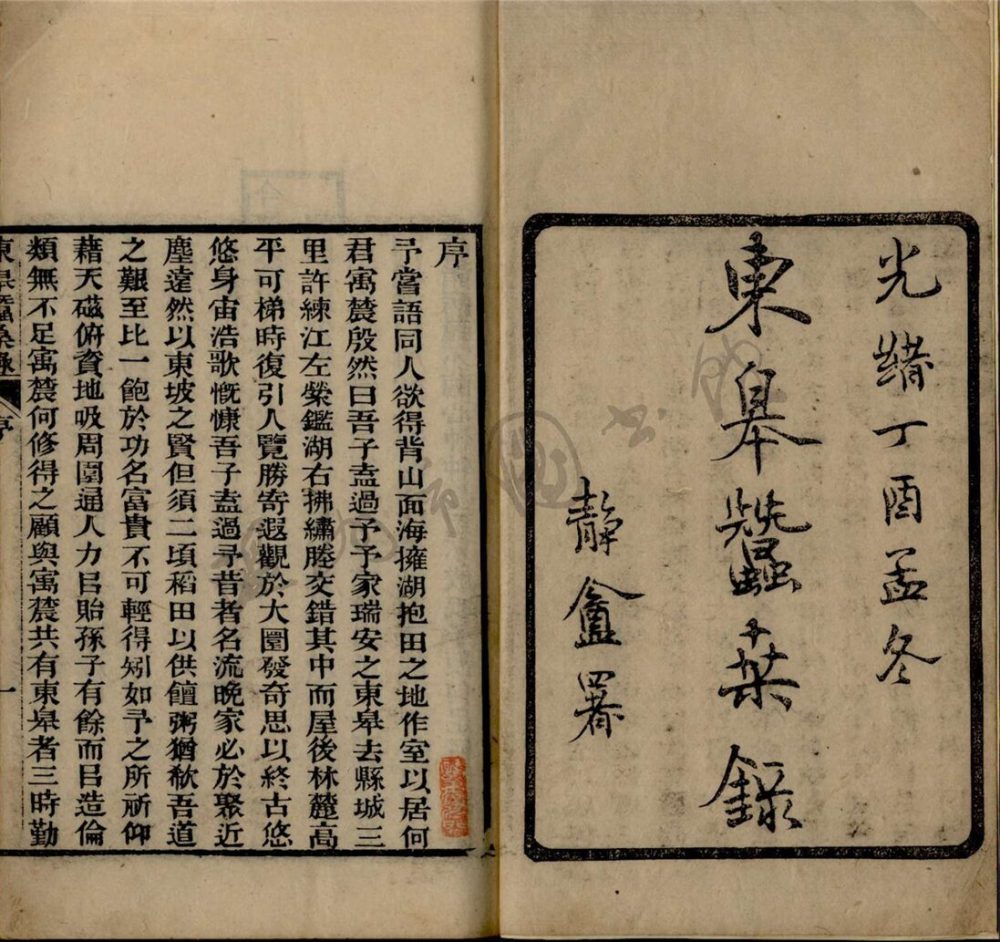 光緒丁酉孟冬
東皋蠶桒錄
靜盦署
序
予嘗語同人欲得背山面海擁湖抱田之地作室以居何
君寓農殷然曰吾子盍過予予家瑞安之東皋去縣城三
里許練江左縈鑑湖右拂繡塍交錯其中而屋後林麓高
平可梯時復引人覽勝寄遐觀於大圜發奇思以終古悠
悠身宙浩歌慨慷吾子盍過予昔者名流晚家必於聚近
塵遠然以東坡之賢但須二頃稻田以供饘粥猶欷吾道
之艱至比一飽於功名富貴不可輕得矧如予之所祈仰
藉天磁俯資地吸周圜通人力㠯貽孫子有餘而㠯造倫
類無不足寓農何修得之顧與寓農共有東皋者三時勤
東皋蠶桑錄 序 一